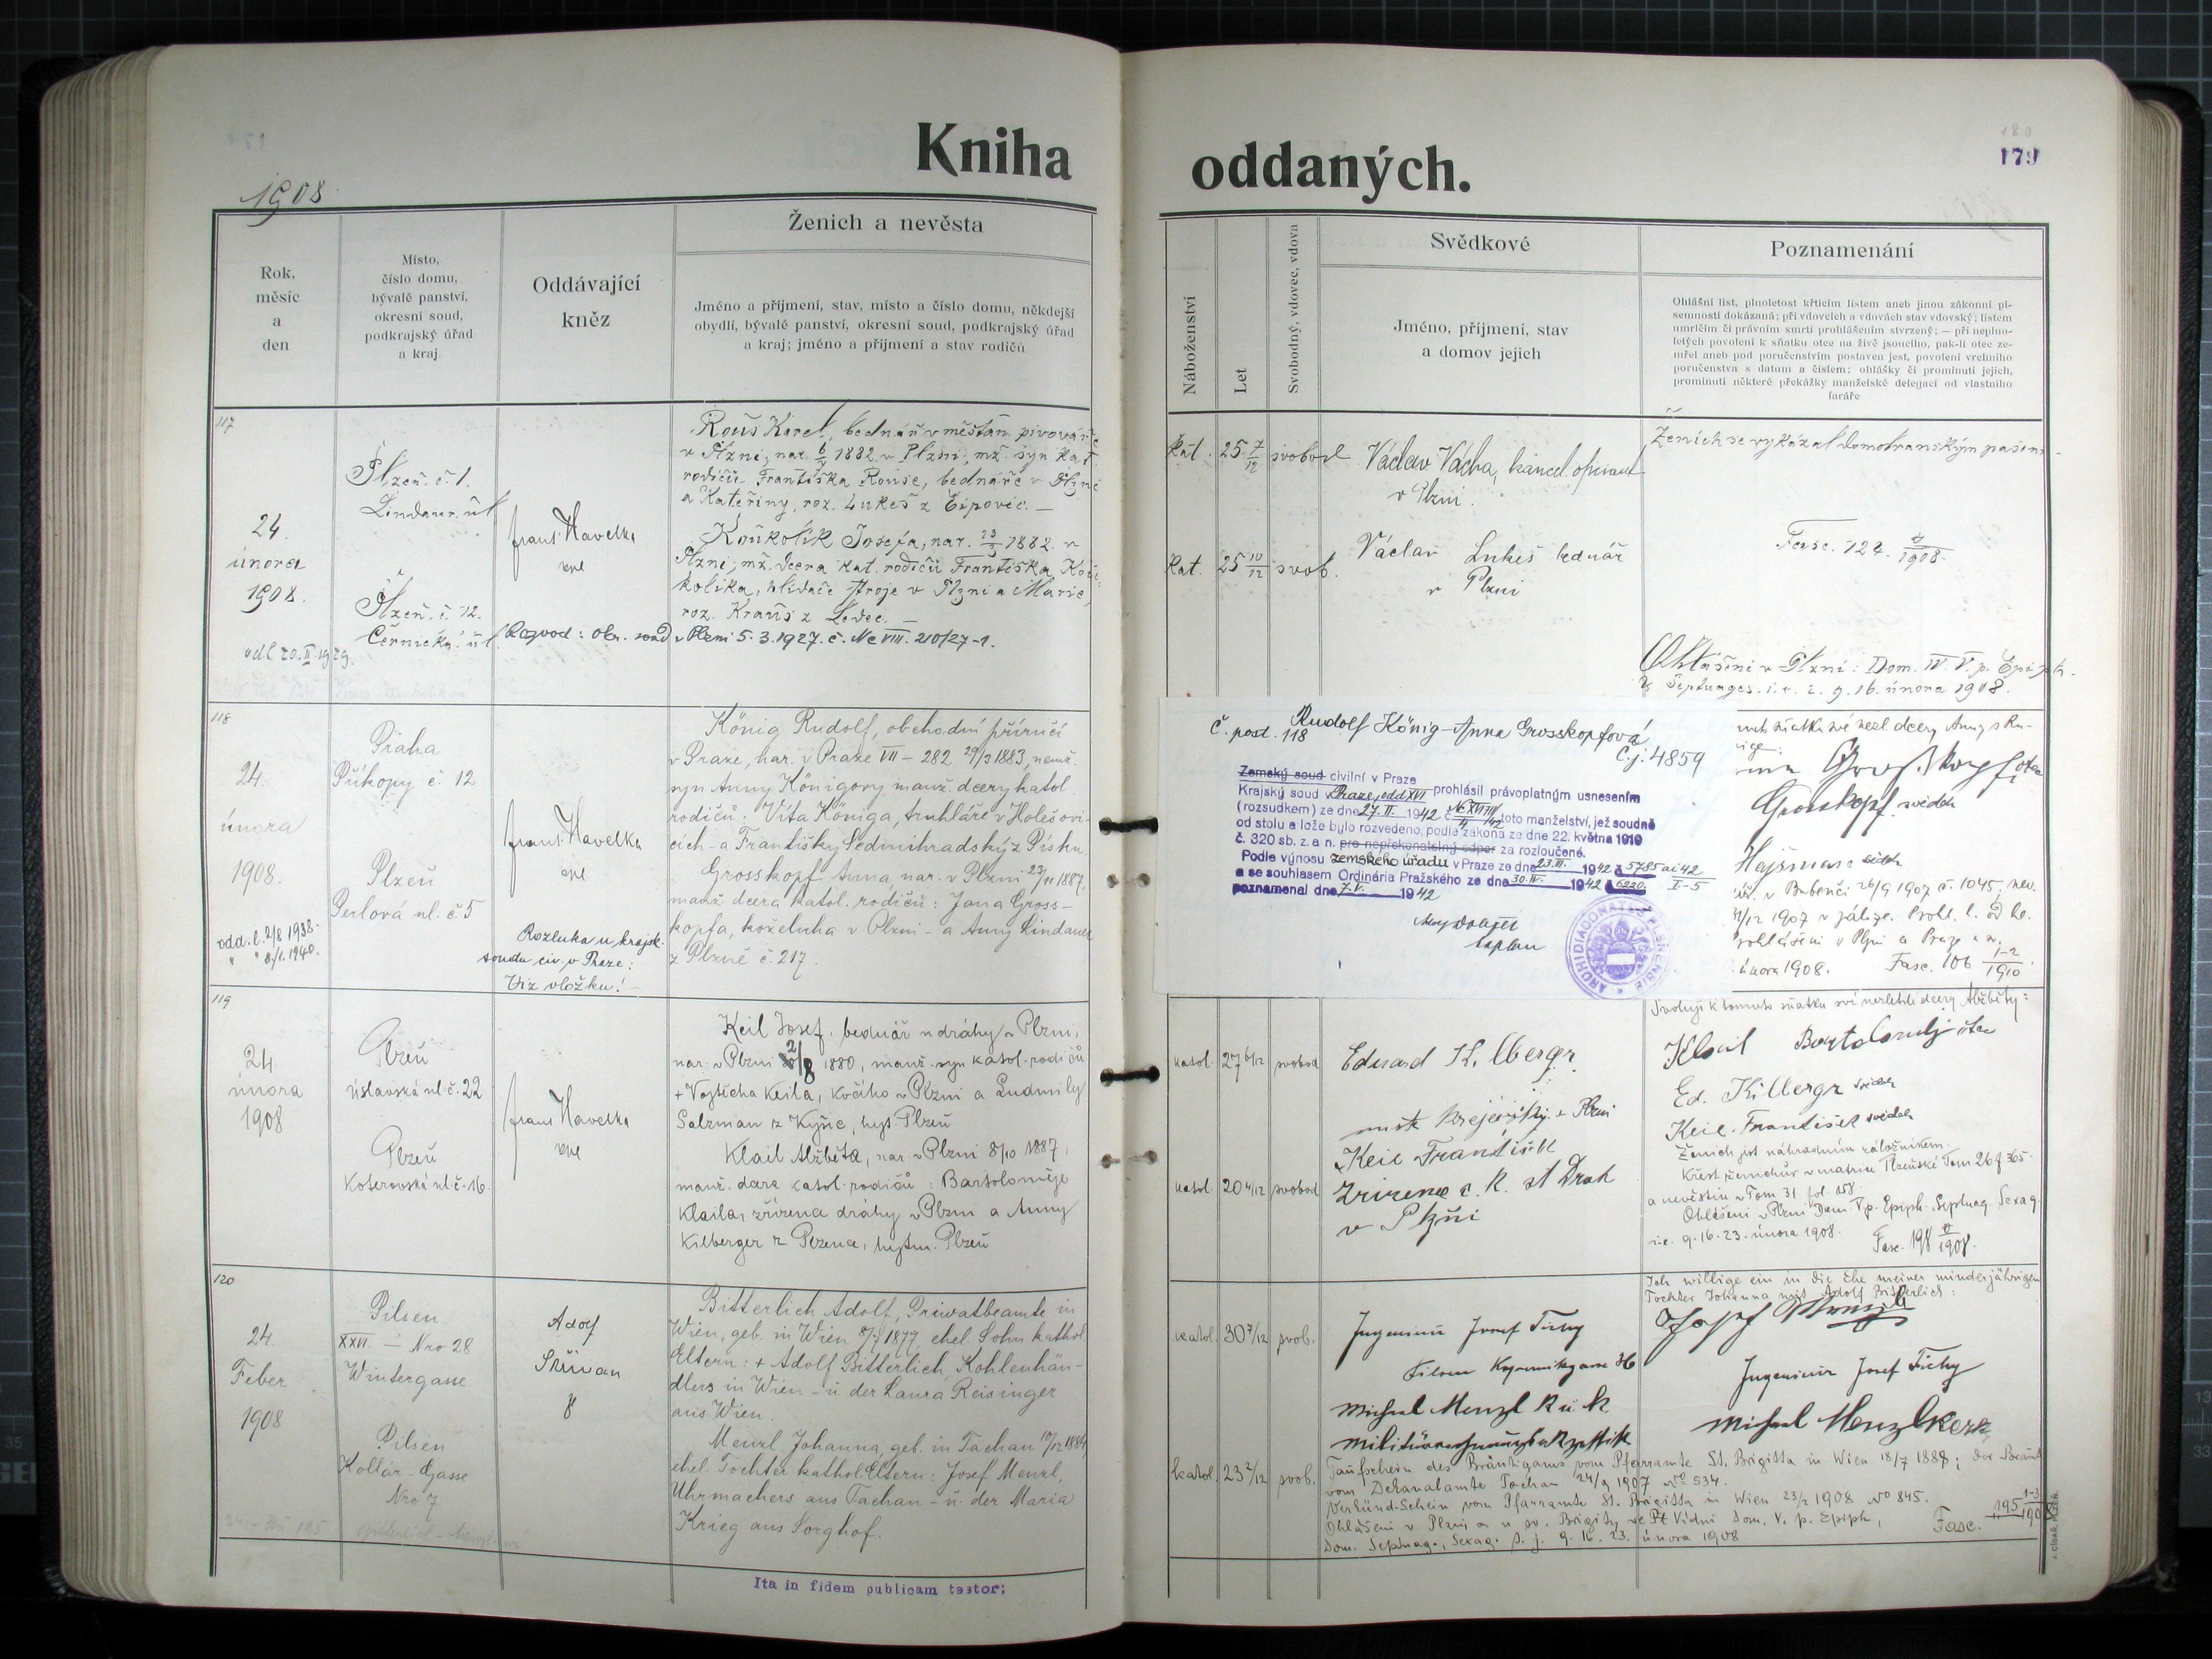 Kniha
oddaných.
179
1908
Rok,
měsíc
a
den
Místo,
číslo domu,
bývalé panství,
okresní soud,
podkrajský úřad
a kraj
Oddávající
kněz
Ženich a nevěsta
Jméno a příjmení, stav, místo a číslo domu, někdejší
obydlí, bývalé panství, okresní soud, podkrajský úřad
a kraj; jméno a příjmení a stav rodičů
Náboženství
Let
Svobodný, vdovec, vdova
Svědkové
Jméno, příjmení, stav
a domov jejich
Poznamenání
Ohlášní list, plnoletost křticím listem aneb jinou zákonní pí-
semností dokázaná; při vdovcích a vdovách stav vdovský; listem
umrlčím či právním smrti prohlášením stvrzený; — při neplno-
letých povolení k sňatku otce na živě jsoucího, pak-li otec ze-
mřel aneb pod poručenstvím postaven jest, povolení vrchního
poručenstva s datum a číslem; ohlášky či prominutí jejich,
prominutí některé překážky manželské delegací od vlastního
faráře
117
24.
února
1908.
odl 20. II. 1929.
Plzeň č. 1.
Lindauer. ul
Plzeň č. 12.
Černická ul
Frant. Havelka
Rouš Karel, bednář v měšťan. pivováře
v Plzni, nar. 1882 v Plzni, mž. syn kat.
rodičů Františka Rouše, bednáře v Plzni
a Kateřiny, roz. Lukeš z Ejpovic. —
Koukolík Josefa, nar. 1882 v
Plzni, mž. dcera kat. rodičů Františka Kou-
kolíka, hlídače stroje v Plzni a Marie,
roz. Kraus z Ledec. —
Rozvod: okr. soud v Plzni 5. 3. 1927. č. Nc VIII. 210/27-1.
Kat. 25 7/12 svobod
Kat. 25 10/12 svob.
Václav Vácha, kancel. oficiant
v Plzni.
Václav Lukeš bednář
v Plzni
Ženich se vykázal domovským pasem.
Fasc. 124. 1908.
Ohlášeni v Plzni: Dom. IV. V. p. Epiph.
& Septuages. i. e. 2. 9. 16. února 1908.
118
24.
února
1908.
odd. l. 2/8 1938.
" " 8/1. 1940.
Praha
Příkopy č. 12
Plzeň
Perlová ul. č 5
Frant. Havelka
Rozluka u krajsk.
soudu civ. v Praze:
Viz vložku!
König Rudolf, obchodní příručí
v Praze, nar. v Praze VII – 282 29/3 1883, nemž.
syn Anny Königovy manž. dcery katol.
rodičů: Víta Königa, truhláře v Holešovi-
cích – a Františky Sedmihradský z Písku.
Grosskopf Anna, nar. v Plzni 23/11 1887,
manž. dcera katol. rodičů: Jana Gross-
kopfa, koželuha v Plzni – a Anny Lindauer
z Plzně č. 217.
Č. post. 118
Rudolf König - Anna Grosskopfová
Č.j. 4859
Zemský soud civilní v Praze
Krajský soud v Praze, odd XVI prohlásil právoplatným usnesením
(rozsudkem) ze dne 27. II. 1942 č toto manželství, jež soudně
od stolu a lože bylo rozvedeno, podle zákona ze dne 22. května 1919
č. 320 sb. z. a n. pro nepřekonatelný odpor za rozloučené.
Podle výnosu zemského úřadu v Praze ze dne 23. III. 1942 č 5785 ai 42
I-5
a se souhlasem Ordinária Pražského ze dne 30. IV. 1942 č 6220.
poznamenal dne 7. V. 1942
kaplan
Grosskopf, otec
Grosskopf svědek
Hajšman svědek
v Bubenči 26/9 1907 č. 1045; nev.
1907 v záloze. Prohl. l. od he.
ohlášení v Plzni a Praze
února 1908. Fasc. 106 1-2/1910
119
24.
února
1908
Plzeň
Úslavská ul. č. 22
Plzeň
Koterovská ul. č. 16.
Frant. Havelka
Keil Josef, bednář u dráhy v Plzni,
nar. v Plzni 2/8 1880, manž. syn katol. rodičů
+ Vojtěcha Keila, kočího v Plzni a Ludmily
Salzman z Kyšic, hejt. Plzeň
Klail Alžběta, nar. v Plzni 8/10 1887,
manž. dcera katol. rodičů: Bartoloměje
Klaila, zřízence dráhy v Plzni a Anny
Kilberger z Plzence, hejtm. Plzeň
katol. 27 6/12 svobod
katol. 20 4/12 svobod
Eduard Kilbergr
mistr krejčovský v Plzni
Keil František
zřízenec c. k. st Drah
v Plzni
Svoluji k tomuto sňatku své nezletilé dcery Alžběty:
Klail Bartoloměj otec
Ed. Killbergr svědek
Keil František svědek
Ženich jest náhradním záložníkem.
Křest ženichův v matrice Plzeňské Tom 26 f 365.
a nevěstin v Tom 31 fol. 158.
Ohlášeni v Plzni Dom. V p. Epiph. Septuag. Sexag.
i. e. 9. 16. 23. února 1908. Fasc. 198 1908.
120
24.
Feber
1908
Pilsen
XXVI — Nro 28
Wintergasse
Pilsen
Kollár-Gasse
Nro 7
Adolf
Bitterlich Adolf, Privatbeamte in
Wien, geb. in Wien 8/7 1877, ehel. Sohn kathol.
Eltern: + Adolf Bitterlich, Kohlenhän-
dlers in Wien – u. der Laura Reisinger
aus Wien.
Menzl Johanna, geb. in Tachau 10/12 1884,
ehel. Tochter kathol. Eltern: Josef Menzl,
Uhrmachers aus Tachau – u. der Maria
Krieg aus Sorghof.
katol. 30 7/12 svob.
katol. 23 2/12 svob.
Ingenieur Josef Tichy
Pilsen Kopernikgasse 36
Michael Menzl k u k
Ich willige ein in die Ehe meiner minderjährigen
Tochter Johanna mit Adolf Bitterlich:
Josef Menzl
Ingenieur Josef Tichy
Michael Menzl
Taufschein des Bräutigams vom Pfarramte St. Brigitta in Wien 18/7 1888; der Braut
vom Dekanalamte Tachau 24/9 1907 No 534.
Verkünd-Schein vom Pfarramte St. Brigitta in Wien 23/2 1908 No 845.
Ohlášeni v Plzni a u sv. Brigity ve Vídni Dom. V. p. Epiph.,
Dom. Septuag., Sexag. t. j. 9. 16. 23. února 1908
Fasc. 195
Ita in fidem publicam testor: